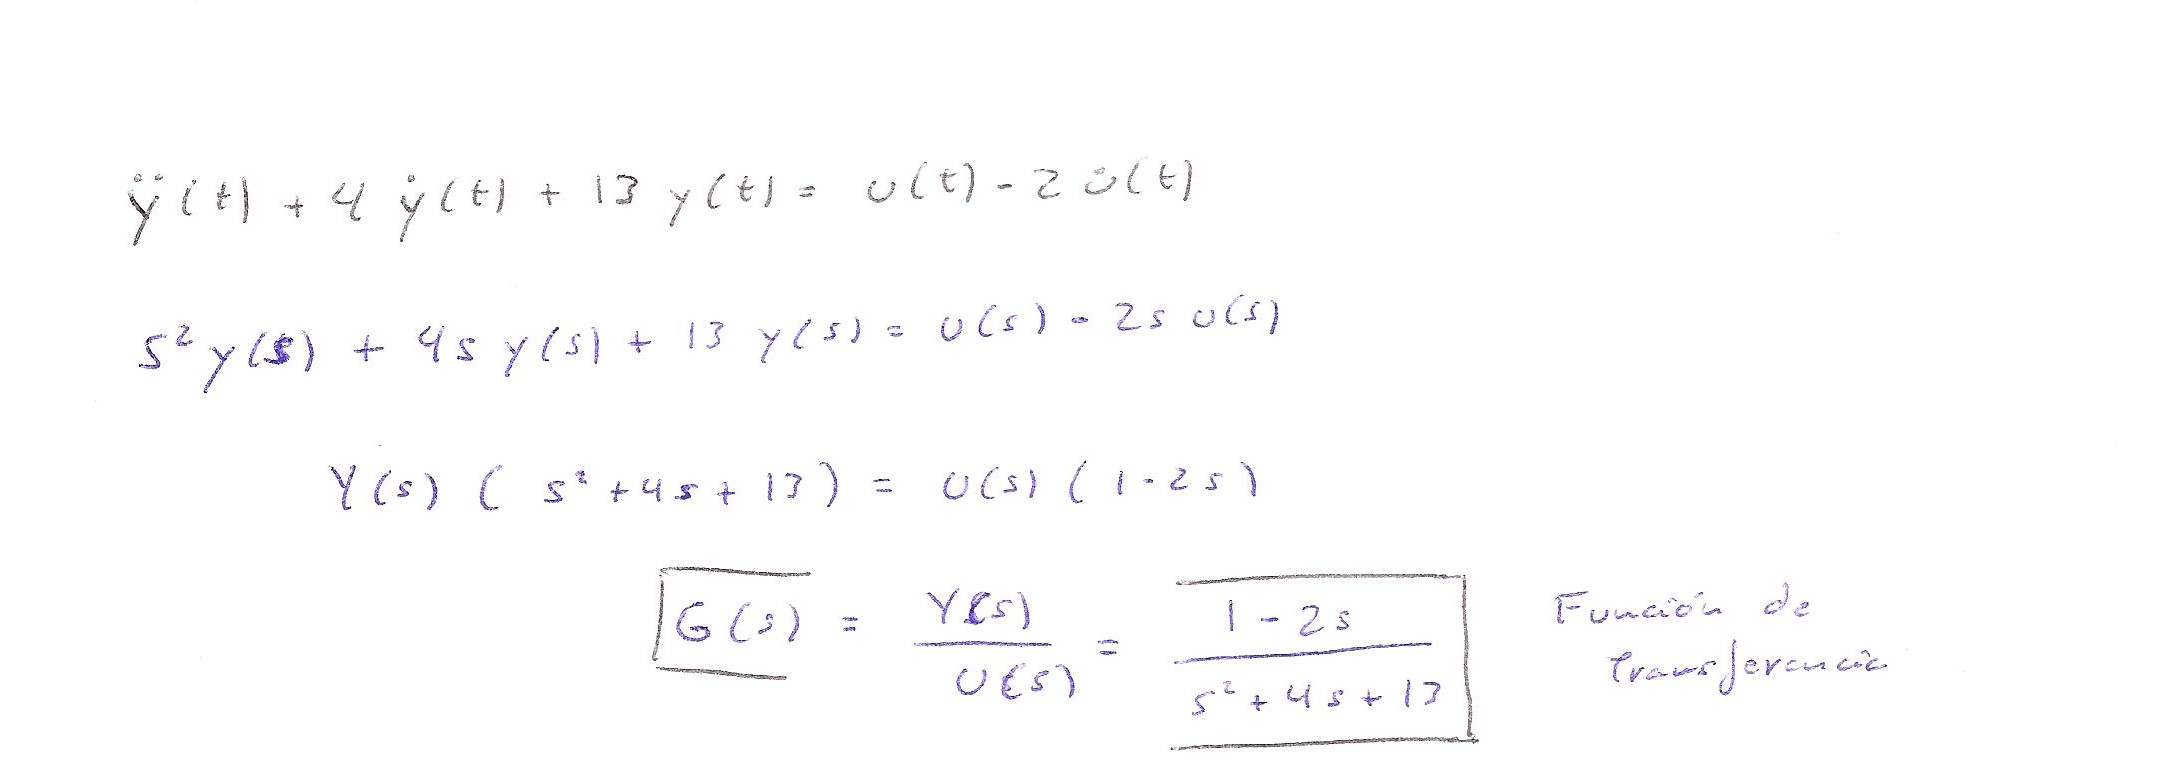 ÿ(t) + 4 ẏ(t) + 13 y(t) = u(t) - 2 u̇(t)
s² y(s) + 4s y(s) + 13 y(s) = u(s) - 2s u(s)
Y(s) ( s² + 4s + 13 ) = U(s) ( 1 - 2s )
G(s) = Y(s) / U(s) = 1 - 2s / s² + 4s + 13 Función de
transferencia